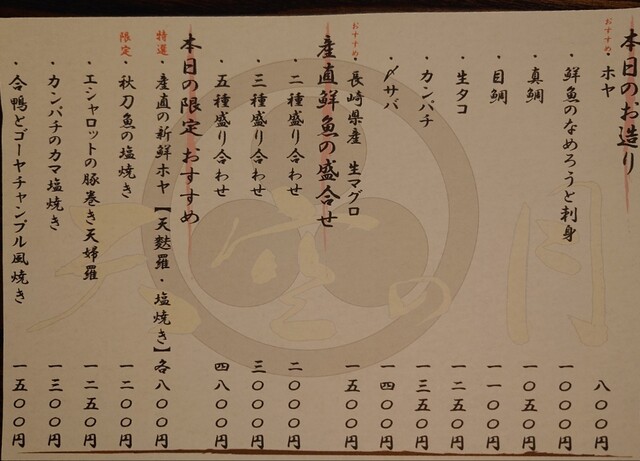 本日のお造り
おすすめ・ホヤ 八〇〇円
・鮮魚のなめろうと刺身 一〇〇〇円
・真鯛 一〇五〇円
・目鯛 一一〇〇円
・生タコ 一二五〇円
・カンパチ 一三五〇円
・〆サバ 一四〇〇円
おすすめ・長崎県産 生マグロ 一五〇〇円
産直鮮魚の盛合せ
・二種盛り合わせ 二〇〇〇円
・三種盛り合わせ 三〇〇〇円
・五種盛り合わせ 四八〇〇円
本日の限定おすすめ
特選・産直の新鮮ホヤ【天麩羅・塩焼き】各八〇〇円
限定・秋刀魚の塩焼き 一二〇〇円
・エシャロットの豚巻き天婦羅 一二五〇円
・カンパチのカマ塩焼き 一三〇〇円
・合鴨とゴーヤチャンプル風焼き 一五〇〇円